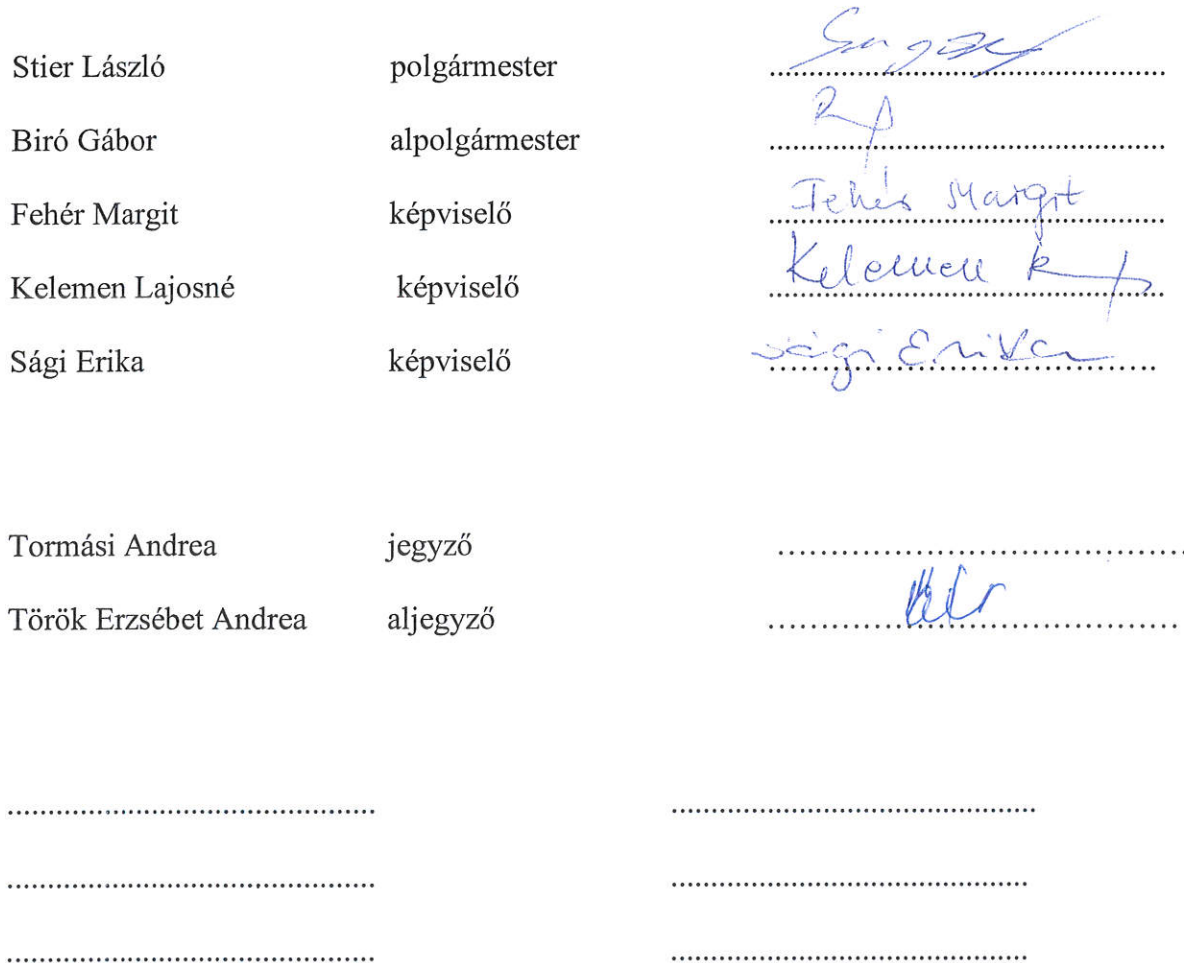 Stier László polgármester
Biró Gábor alpolgármester
Fehér Margit képviselő Fehér Margit
Kelemen Lajosné képviselő Kelemen
Sági Erika képviselő Sági Erika
Tormási Andrea jegyző
Török Erzsébet Andrea aljegyző